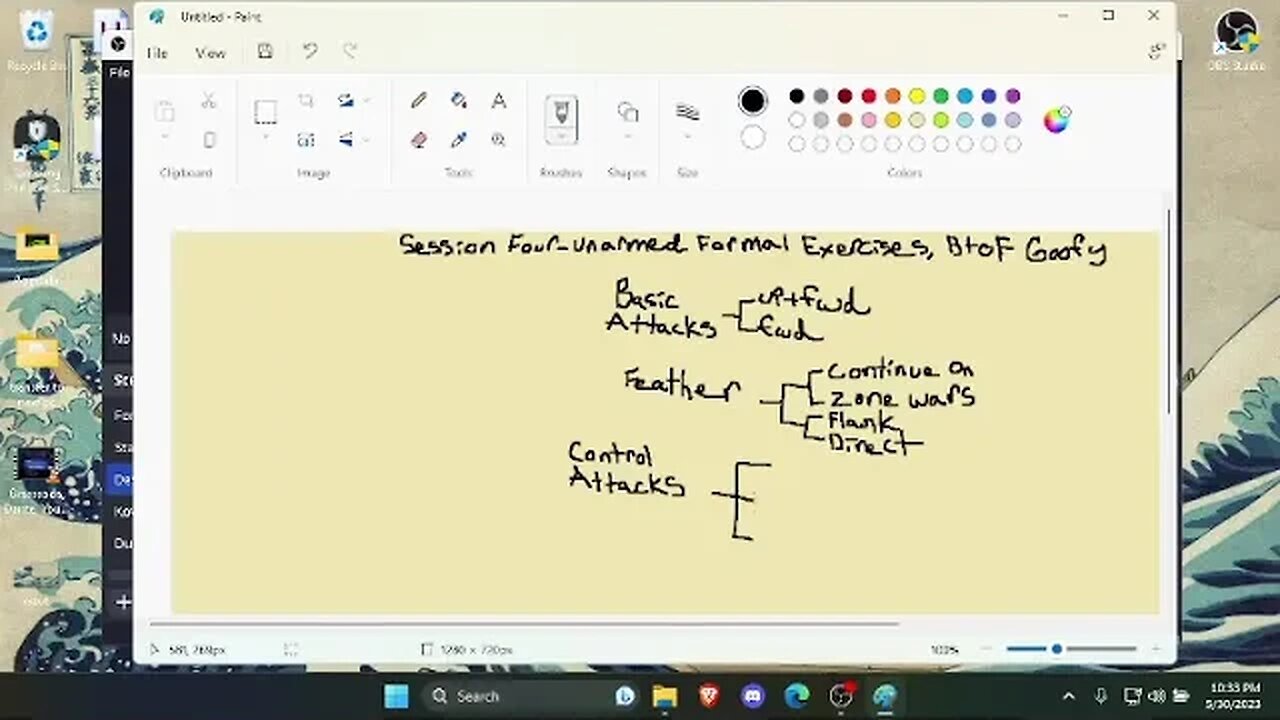 Untitled - Paint
File View
Clipboard Image Tools Brushes Shapes Size Colors
Recycle Bin
OBS Studio
File
Session Four-Unarmed Formal Exercises, BtoF Goofy
Basic
Attacks
up+fwd
fwd
Feather
Continue on
Zone wars
Flank
Direct
Control
Attacks
No
Sta
De
Du
1280 × 720px
100%
Search
10:33 PM
5/30/2023